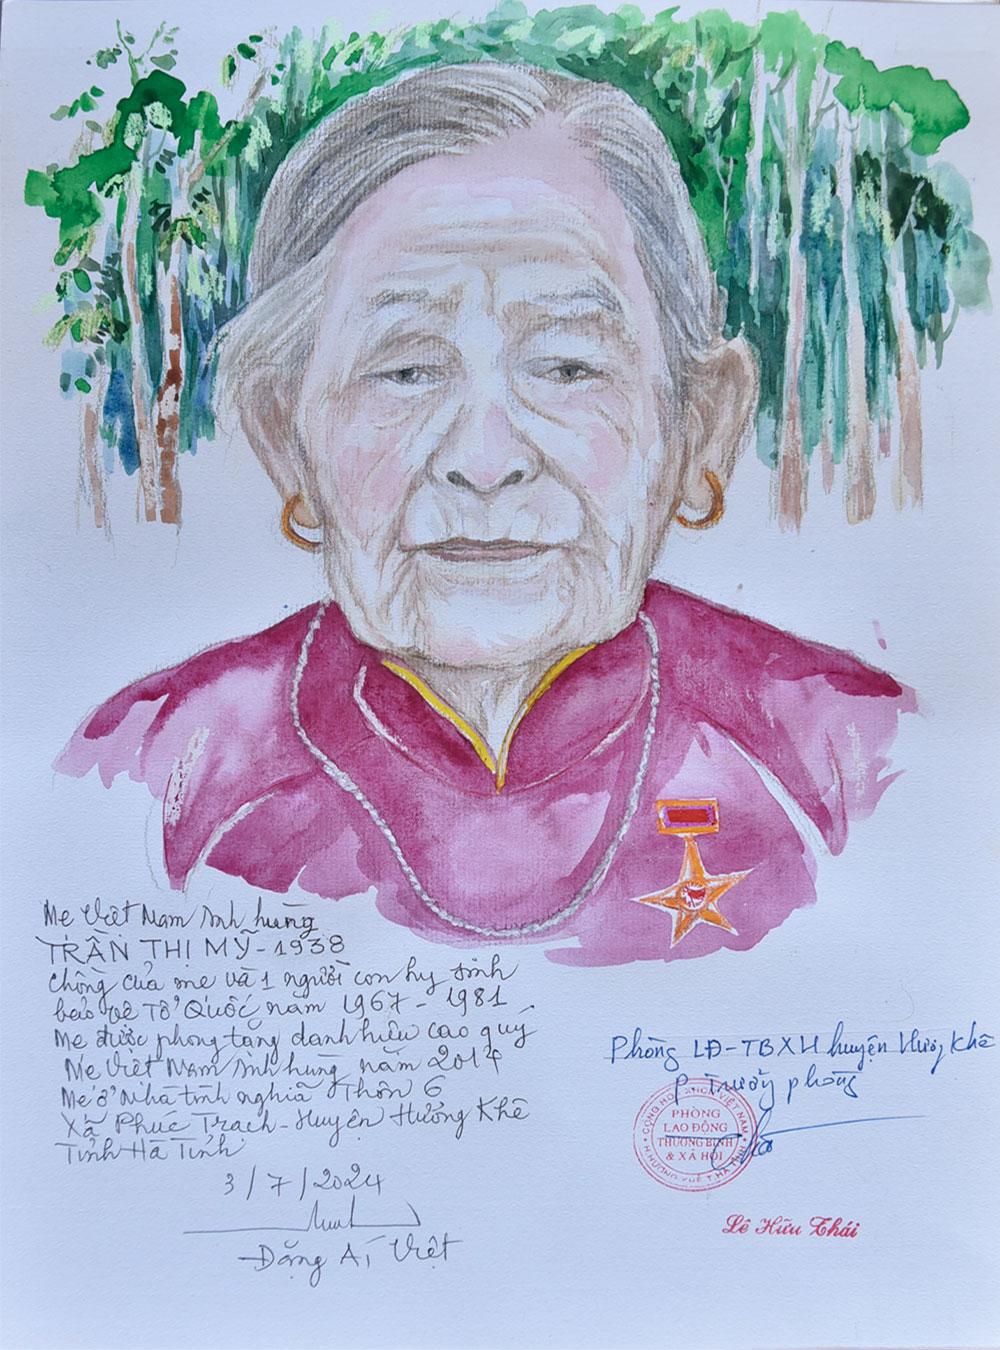 Mẹ Việt Nam Anh hùng
TRẦN THỊ MỸ - 1938
Chồng của mẹ và 1 người con hy sinh
bảo vệ Tổ Quốc năm 1967 - 1981.
Mẹ được phong tặng danh hiệu cao quý
Mẹ Việt Nam Anh hùng năm 2014
Mẹ ở Nhà tình nghĩa Thôn 6
Xã Phúc Trạch - Huyện Hương Khê
Tỉnh Hà Tĩnh
3/7/2024
Đặng Ái Việt
Phòng LĐ-TBXH huyện Hương Khê
P Trưởng phòng
CỘNG HÒA XHCN VIỆT NAM
PHÒNG
LAO ĐỘNG
THƯƠNG BINH
& XÃ HỘI
H.HƯƠNG KHÊ T.HÀ TĨNH
Lê Hữu Thái